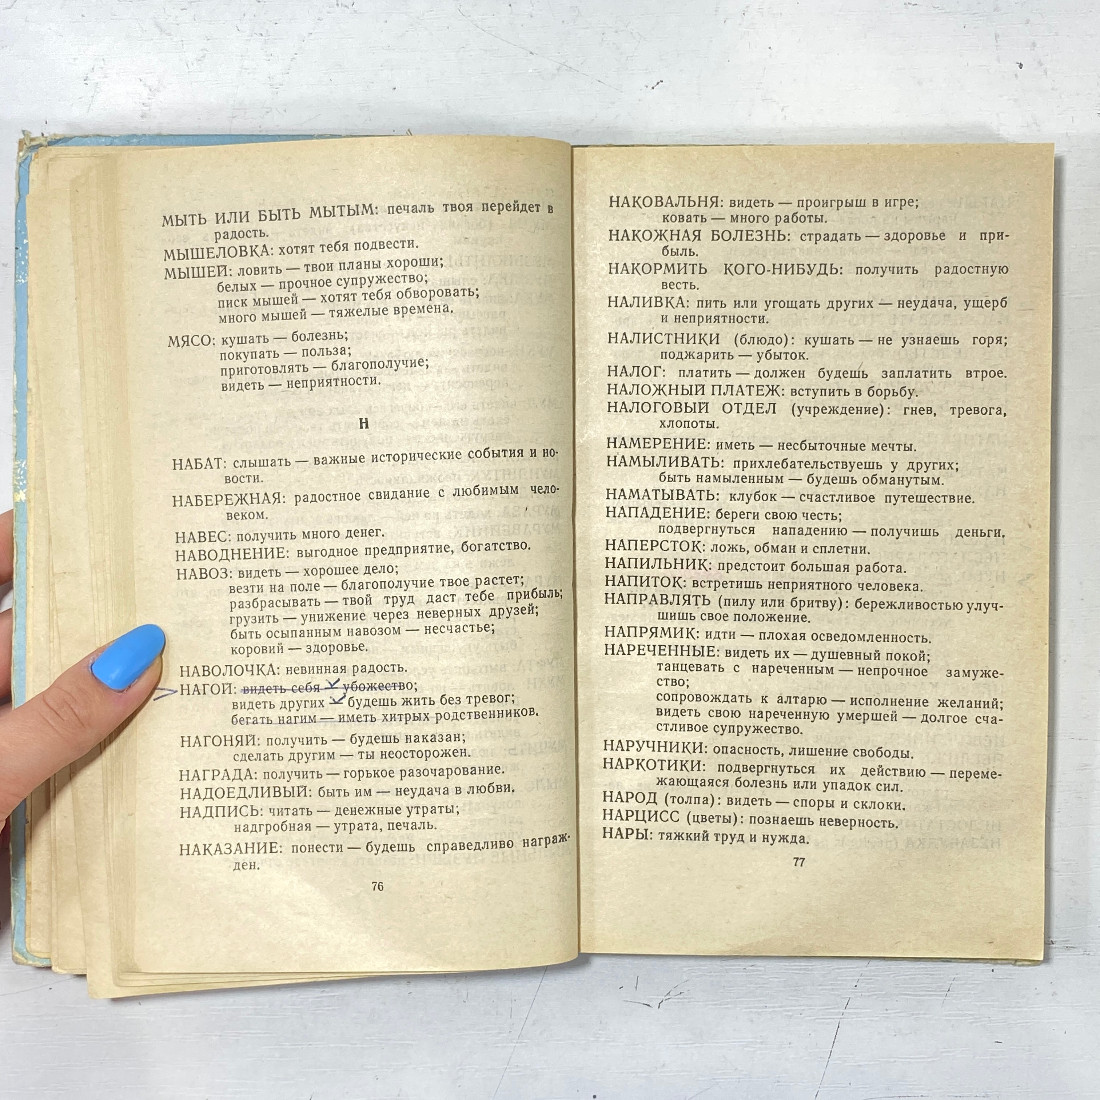 МЫТЬ ИЛИ БЫТЬ МЫТЫМ: печаль твоя перейдет в
радость.
МЫШЕЛОВКА: хотят тебя подвести.
МЫШЕЙ: ловить — твои планы хороши;
белых — прочное супружество;
писк мышей — хотят тебя обворовать;
много мышей — тяжелые времена.
МЯСО: кушать — болезнь;
покупать — польза;
приготовлять — благополучие;
видеть — неприятности.
Н
НАБАТ: слышать — важные исторические события и но-
вости.
НАБЕРЕЖНАЯ: радостное свидание с любимым чело-
веком.
НАВЕС: получить много денег.
НАВОДНЕНИЕ: выгодное предприятие, богатство.
НАВОЗ: видеть — хорошее дело;
везти на поле — благополучие твое растет;
разбрасывать — твой труд даст тебе прибыль;
грузить — унижение через неверных друзей;
быть осыпанным навозом — несчастье;
коровий — здоровье.
НАВОЛОЧКА: невинная радость.
НАГОЙ: видеть себя — убожество;
видеть других — будешь жить без тревог;
бегать нагим — иметь хитрых родственников.
НАГОНЯЙ: получить — будешь наказан;
сделать другим — ты неосторожен.
НАГРАДА: получить — горькое разочарование.
НАДОЕДЛИВЫЙ: быть им — неудача в любви.
НАДПИСЬ: читать — денежные утраты;
надгробная — утрата, печаль.
НАКАЗАНИЕ: понести — будешь справедливо награж-
ден.
76
НАКОВАЛЬНЯ: видеть — проигрыш в игре;
ковать — много работы.
НАКОЖНАЯ БОЛЕЗНЬ: страдать — здоровье и при-
быль.
НАКОРМИТЬ КОГО-НИБУДЬ: получить радостную
весть.
НАЛИВКА: пить или угощать других — неудача, ущерб
и неприятности.
НАЛИСТНИКИ (блюдо): кушать — не узнаешь горя;
поджарить — убыток.
НАЛОГ: платить — должен будешь заплатить втрое.
НАЛОЖНЫЙ ПЛАТЕЖ: вступить в борьбу.
НАЛОГОВЫЙ ОТДЕЛ (учреждение): гнев, тревога,
хлопоты.
НАМЕРЕНИЕ: иметь — несбыточные мечты.
НАМЫЛИВАТЬ: прихлебательствуешь у других;
быть намыленным — будешь обманутым.
НАМАТЫВАТЬ: клубок — счастливое путешествие.
НАПАДЕНИЕ: береги свою честь;
подвергнуться нападению — получишь деньги.
НАПЕРСТОК: ложь, обман и сплетни.
НАПИЛЬНИК: предстоит большая работа.
НАПИТОК: встретишь неприятного человека.
НАПРАВЛЯТЬ (пилу или бритву): бережливостью улуч-
шишь свое положение.
НАПРЯМИК: идти — плохая осведомленность.
НАРЕЧЕННЫЕ: видеть их — душевный покой;
танцевать с нареченным — непрочное замуже-
ство;
сопровождать к алтарю — исполнение желаний;
видеть свою нареченную умершей — долгое сча-
стливое супружество.
НАРУЧНИКИ: опасность, лишение свободы.
НАРКОТИКИ: подвергнуться их действию — переме-
жающаяся болезнь или упадок сил.
НАРОД (толпа): видеть — споры и склоки.
НАРЦИСС (цветы): познаешь неверность.
НАРЫ: тяжкий труд и нужда.
77